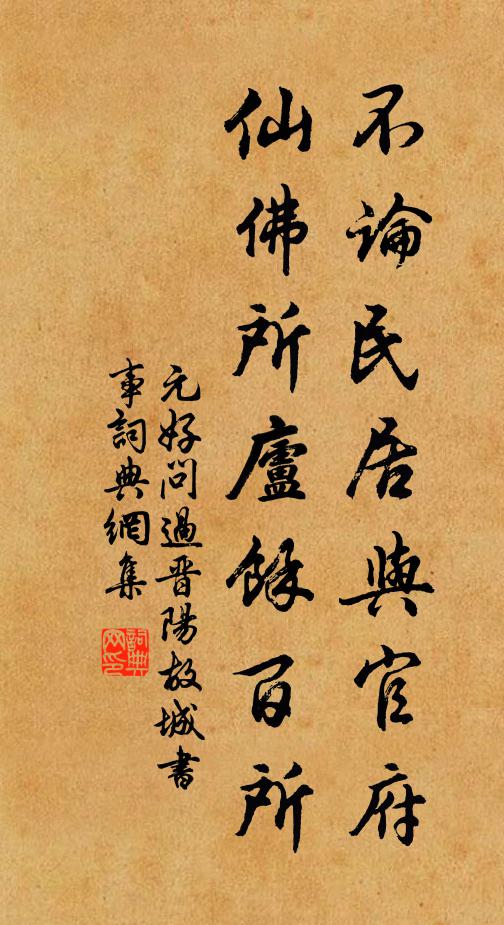 不論民居與官府
仙佛所廬餘百所
元好問過晉陽故城書
事詞典網集
詞典
网印